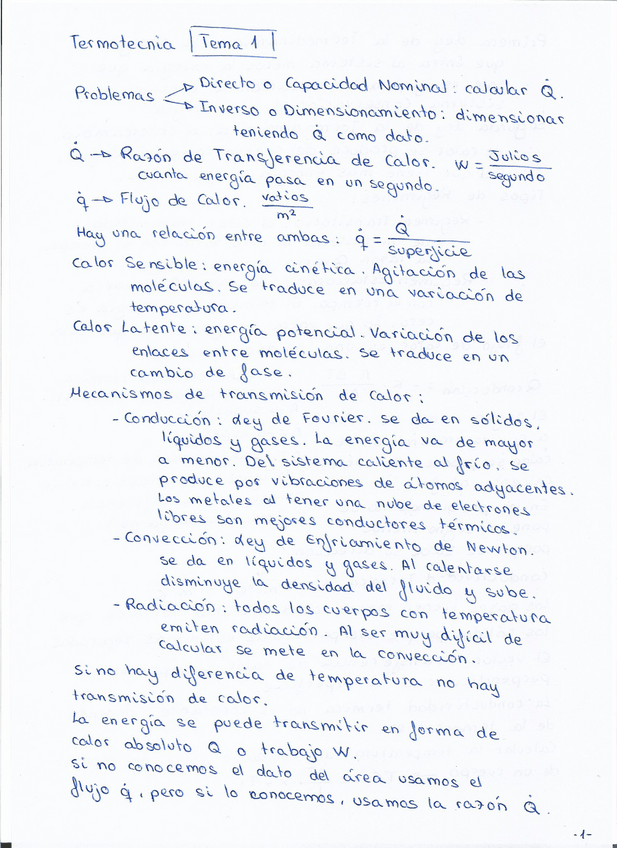 Termotecnia Tema 1
Problemas
Directo o Capacidad Nominal: calcular Q̇.
Inverso o Dimensionamiento: dimensionar
teniendo Q̇ como dato.
Q̇ → Razón de Transferencia de Calor. W = Julios / segundo
cuanta energía pasa en un segundo.
q̇ → Flujo de Calor. vatios / m²
Hay una relación entre ambas: q̇ = Q̇ / superficie
Calor Sensible: energía cinética. Agitación de las
moléculas. Se traduce en una variación de
temperatura.
Calor Latente: energía potencial. Variación de los
enlaces entre moléculas. Se traduce en un
cambio de fase.
Mecanismos de transmisión de calor:
- Conducción: Ley de Fourier. Se da en sólidos,
líquidos y gases. La energía va de mayor
a menor. Del sistema caliente al frío. Se
produce por vibraciones de átomos adyacentes.
Los metales al tener una nube de electrones
libres son mejores conductores térmicos.
- Convección: Ley de Enfriamiento de Newton.
Se da en líquidos y gases. Al calentarse
disminuye la densidad del fluido y sube.
- Radiación: todos los cuerpos con temperatura
emiten radiación. Al ser muy difícil de
calcular se mete en la convección.
Si no hay diferencia de temperatura no hay
transmisión de calor.
La energía se puede transmitir en forma de
calor absoluto Q o trabajo W.
Si no conocemos el dato del área usamos el
flujo q̇, pero si lo conocemos, usamos la razón Q̇.
-1-